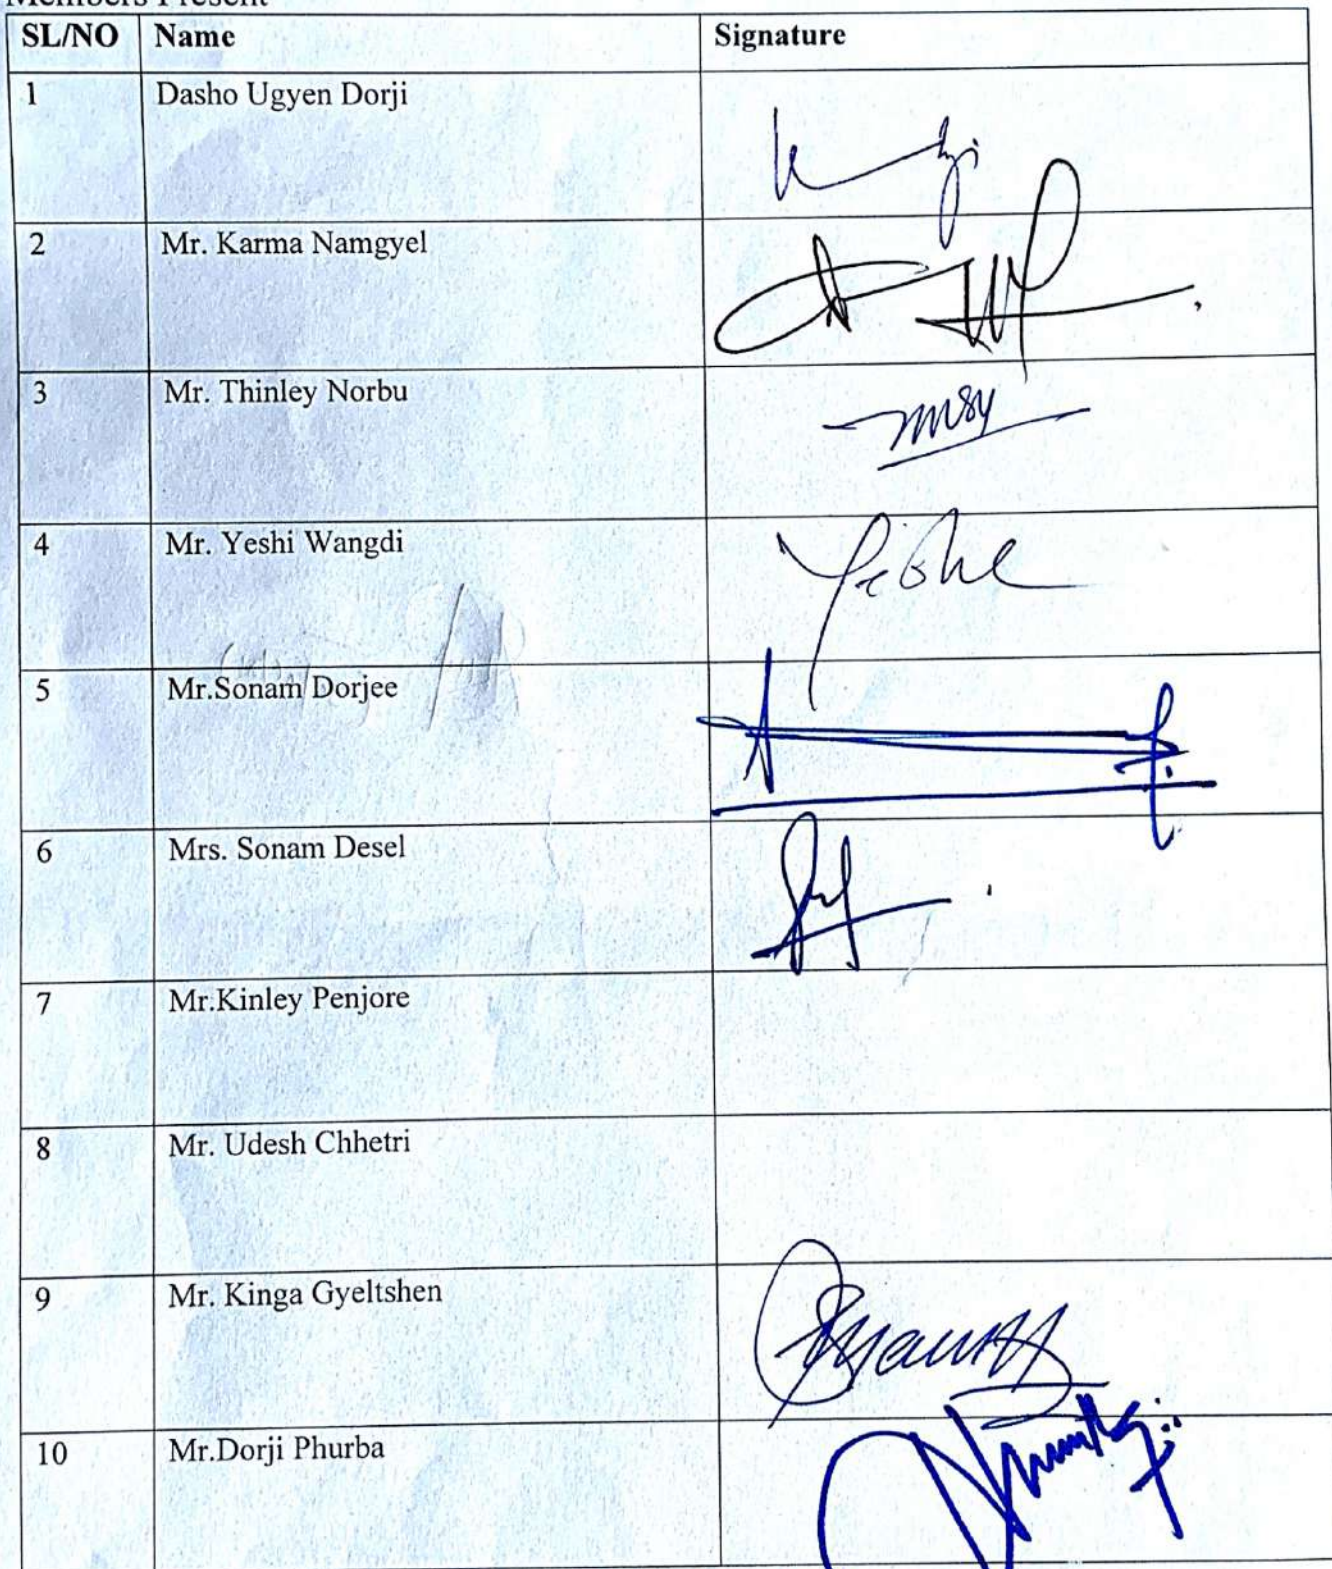 Members Present
SL/NO Name Signature
1 Dasho Ugyen Dorji
2 Mr. Karma Namgyel
3 Mr. Thinley Norbu
4 Mr. Yeshi Wangdi
5 Mr.Sonam Dorjee
6 Mrs. Sonam Desel
7 Mr.Kinley Penjore
8 Mr. Udesh Chhetri
9 Mr. Kinga Gyeltshen
10 Mr.Dorji Phurba